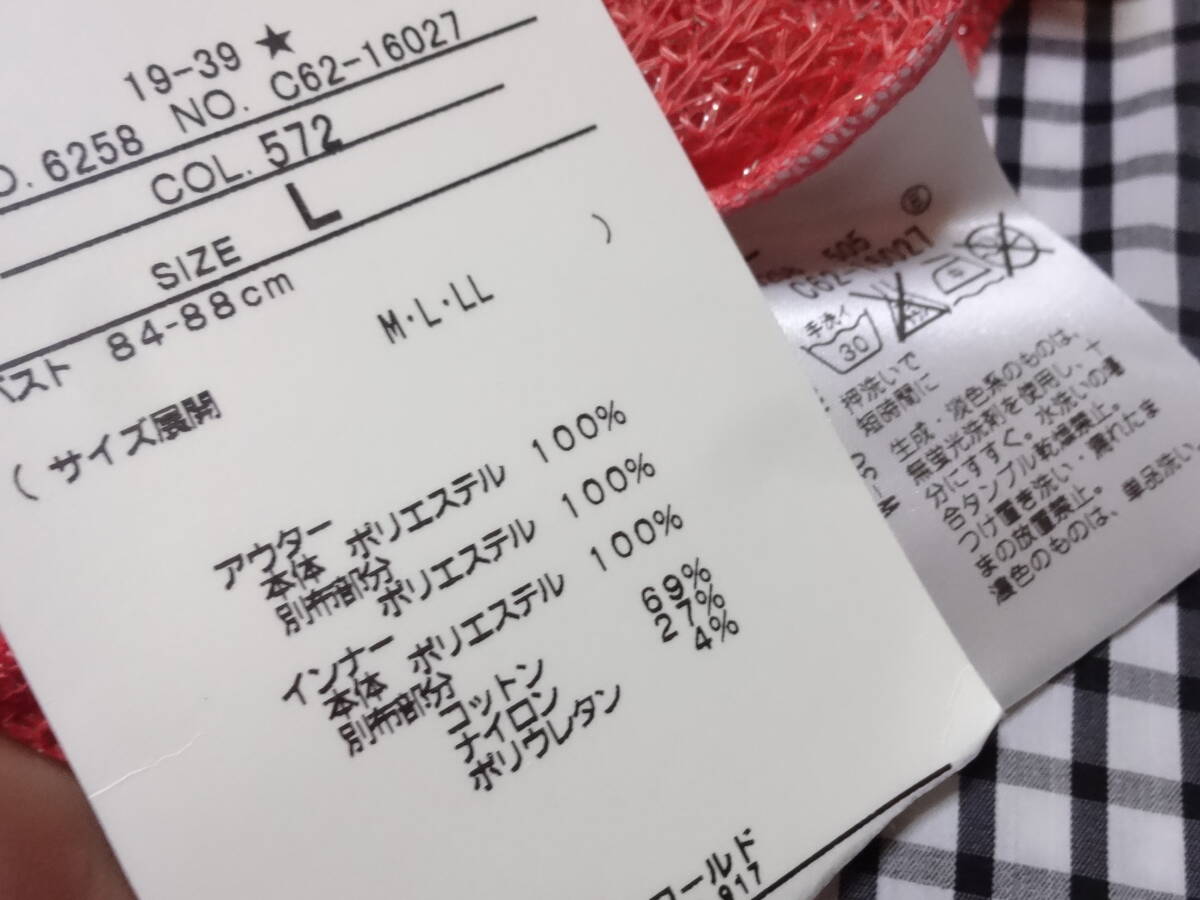 19-39 ★
O. 6258 NO. C62-16027
COL. 572
SIZE L
バスト 84-88cm
(サイズ展開 M・L・LL )
アウター
本体 ポリエステル 100%
別布部分
ポリエステル 100%
インナー
本体 ポリエステル 100%
別布部分
コットン 69%
ナイロン 27%
ポリウレタン 4%
ールド
917
505
C62-16027
手洗イ
30
押洗いで
短時間に
生成・淡色系のものは、
無蛍光洗剤を使用し、十
分にすすぐ。水洗いの場
合タンブル乾燥禁止。
つけ置き洗い・濡れたま
まの放置禁止。
濃色のものは、単品洗い。